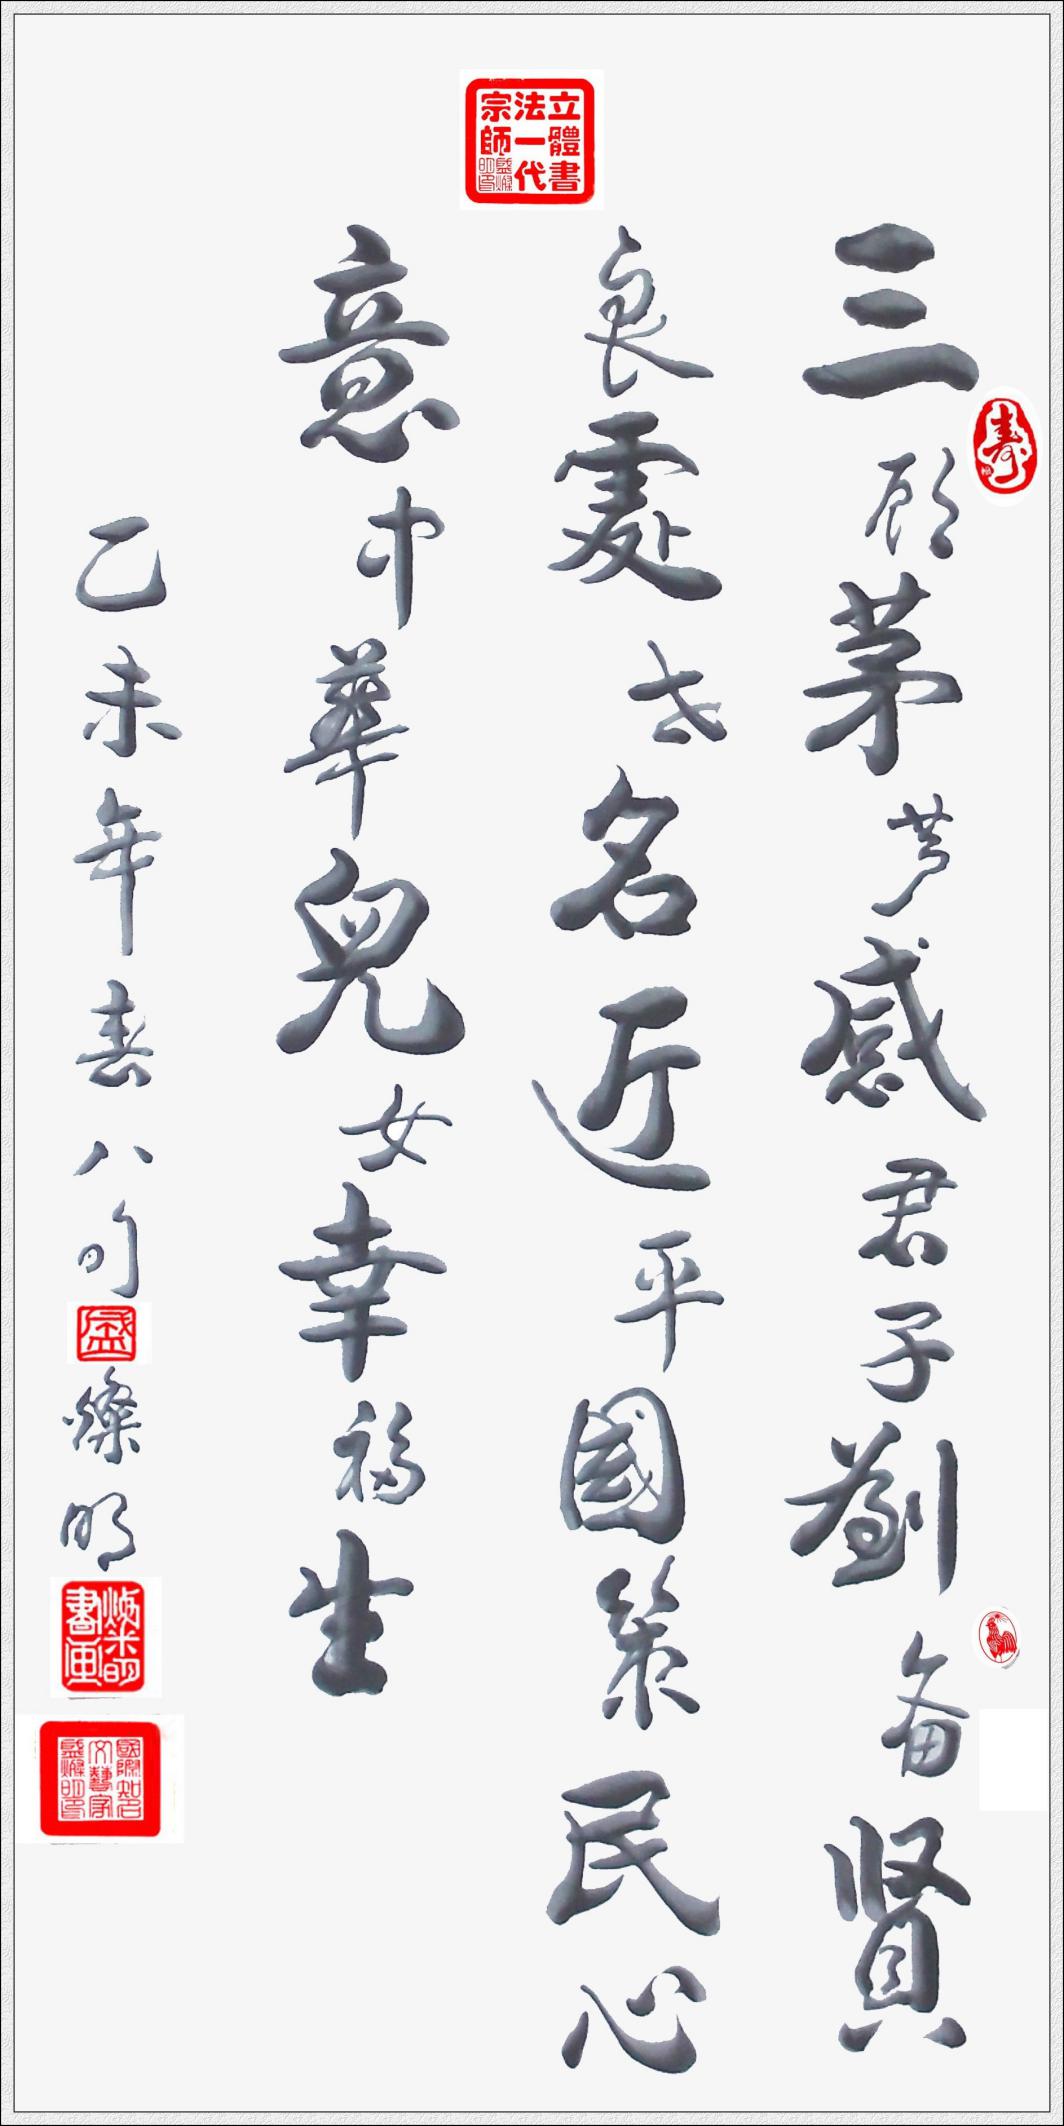 立體書
法一代
宗師
盛燦明印
三顧茅芦感君子劉备賢
寿
良處世名近平國策民心
意中華兒女幸福生
乙未年春八旬
盛
燦明
燦明
書画
國際知名
文藝家
盛燦明印